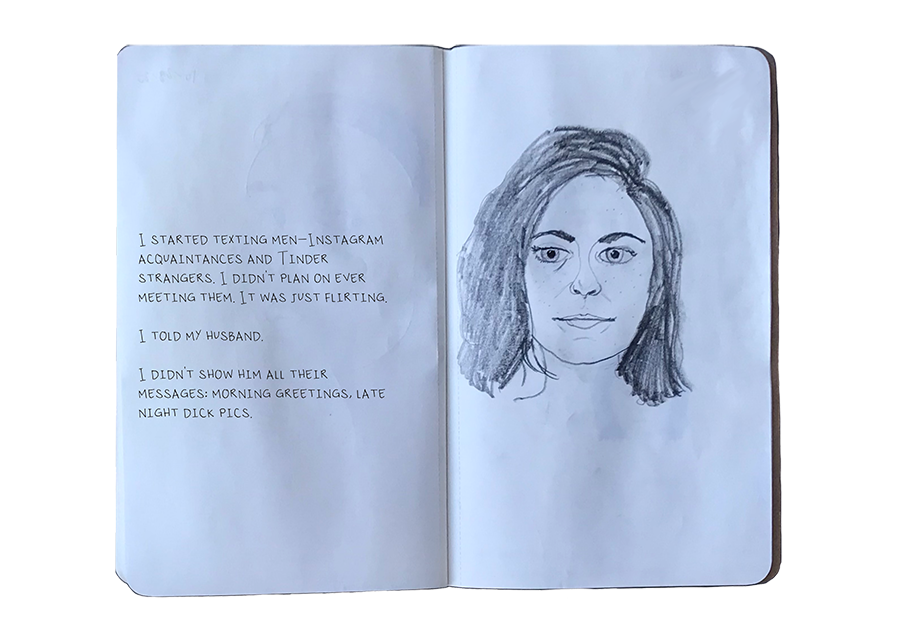 I STARTED TEXTING MEN—INSTAGRAM
ACQUAINTANCES AND TINDER
STRANGERS. I DIDN'T PLAN ON EVER
MEETING THEM. IT WAS JUST FLIRTING.
I TOLD MY HUSBAND.
I DIDN'T SHOW HIM ALL THEIR
MESSAGES: MORNING GREETINGS, LATE
NIGHT DICK PICS.